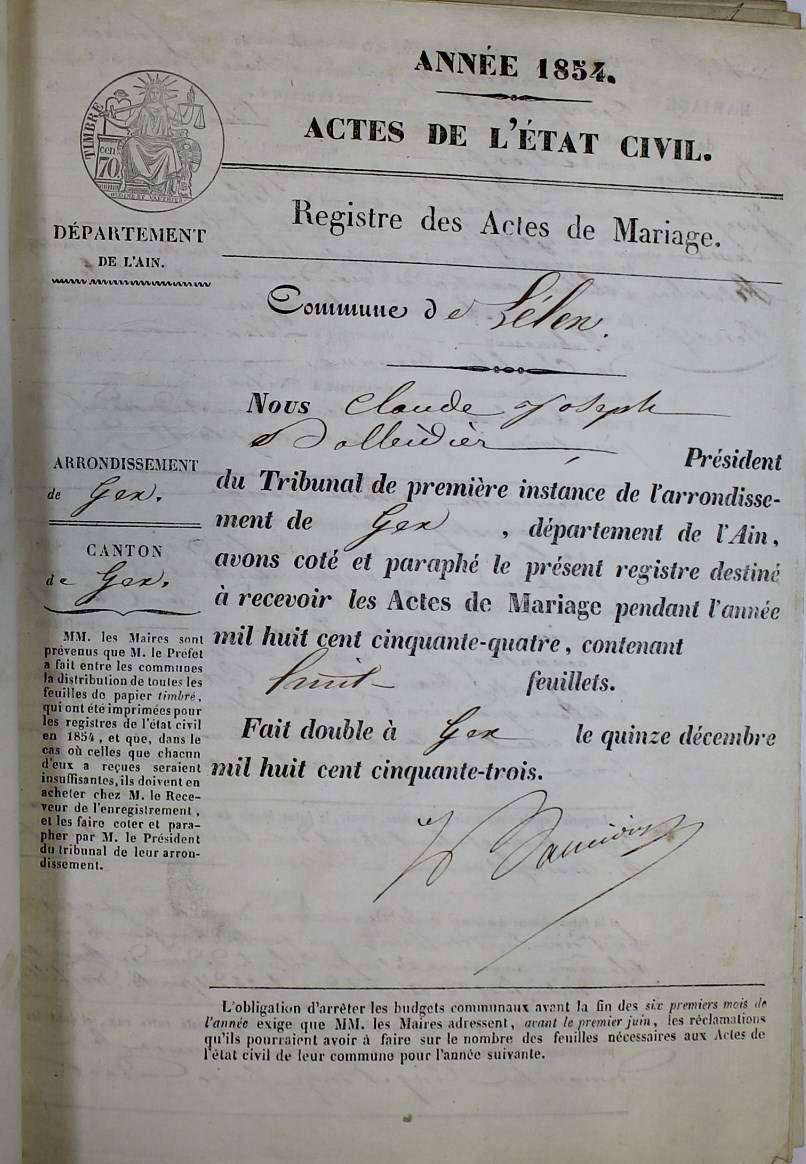 ANNÉE 1854.
ACTES DE L'ÉTAT CIVIL.
Registre des Actes de Mariage.
Commune de Lélex.
TIMBRE
cen
70
DÉPARTEMENT
DE L'AIN.
ARRONDISSEMENT
de Gex.
CANTON
de Gex.
MM. les Maires sont
prévenus que M. le Préfet
a fait entre les communes
la distribution de toutes les
feuilles de papier timbré,
qui ont été imprimées pour
les registres de l'état civil
en 1854, et que, dans le
cas où celles que chacun
d'eux a reçues seraient
insuffisantes, ils doivent en
acheter chez M. le Rece-
veur de l'enregistrement,
et les faire coter et para-
pher par M. le Président
du tribunal de leur arron-
dissement.
Nous Claude Joseph
Président
du Tribunal de première instance de l'arrondisse-
ment de Gex, département de l'Ain,
avons coté et paraphé le présent registre destiné
à recevoir les Actes de Mariage pendant l'année
mil huit cent cinquante-quatre, contenant
huit feuillets.
Fait double à Gex le quinze décembre
mil huit cent cinquante-trois.
L'obligation d'arrêter les budgets communaux avant la fin des six premiers mois de
l'année exige que MM. les Maires adressent, avant le premier juin, les réclamations
qu'ils pourraient avoir à faire sur le nombre des feuilles nécessaires aux Actes de
l'état civil de leur commune pour l'année suivante.